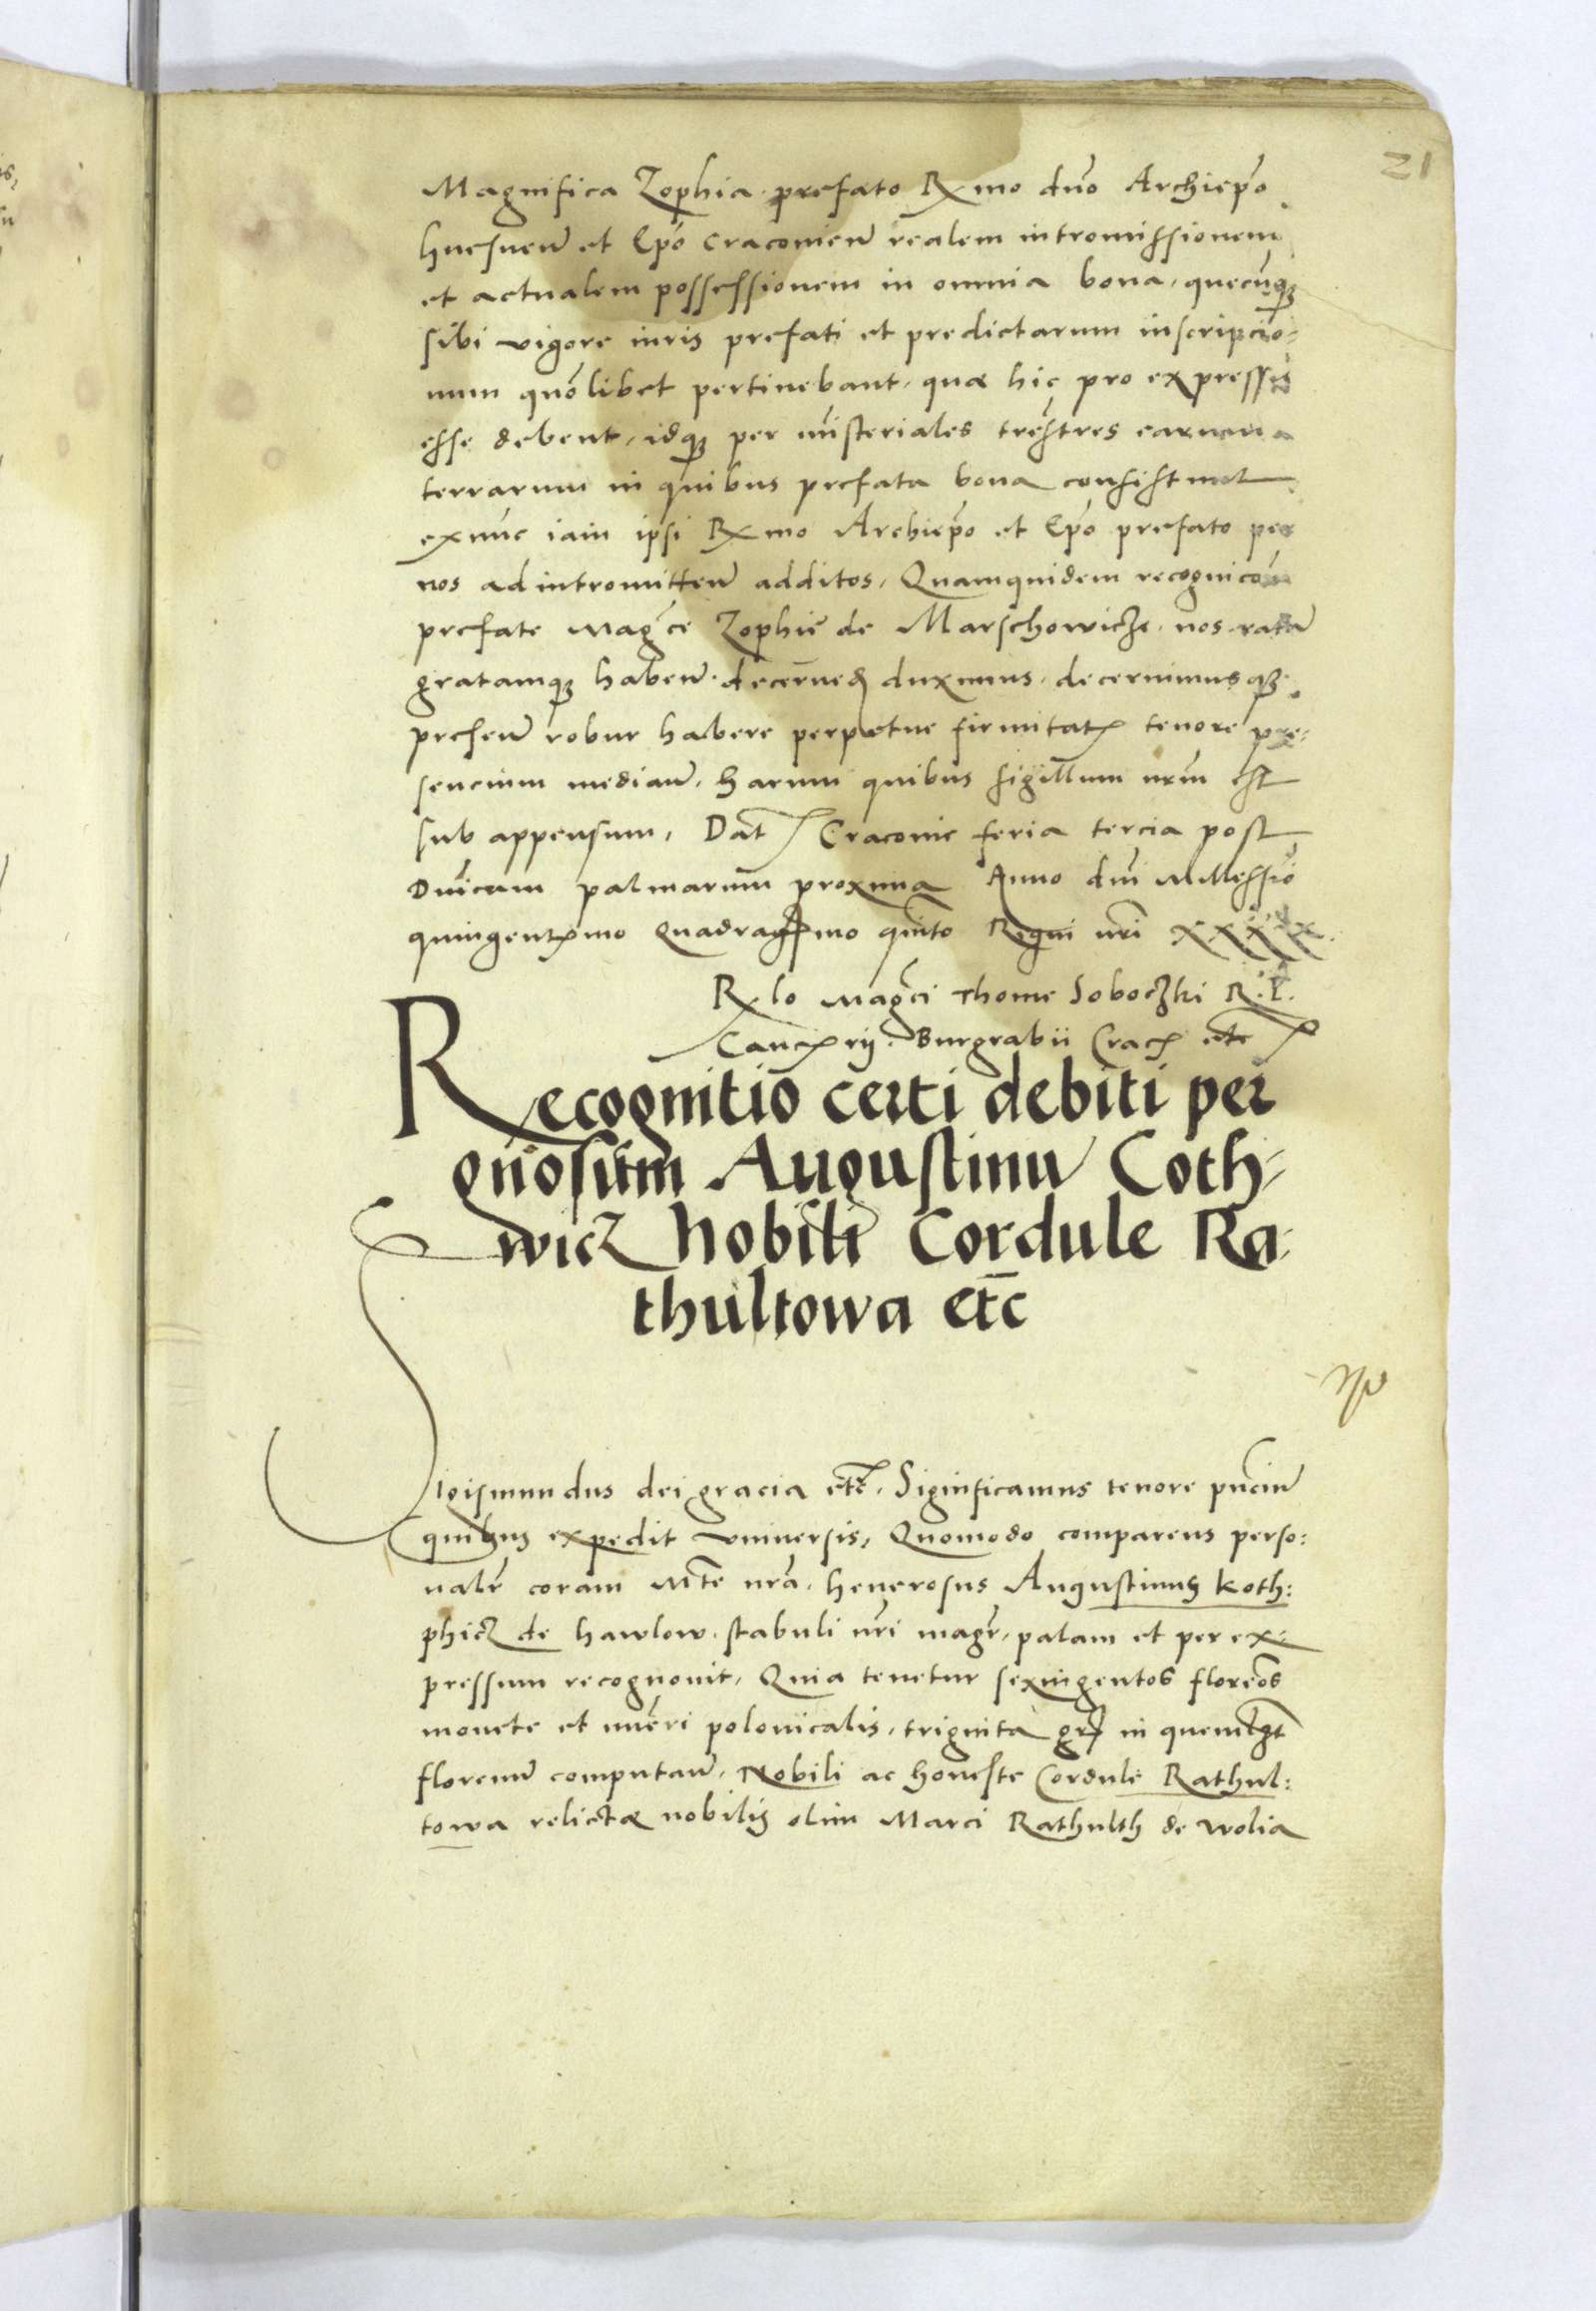 21
Magnifica Zophia prefato Rxmo dno Archiepo
hnesnen et Epo Craconien realem intromissionem
et actualem possessionem in omnia bona, quecunq3
sibi vigore iuris prefati et predictarum inscripcio=
num quolibet pertinebant, quæ hic pro expressis
esse debent, idq3 per misteriales trestres earum
terrarum in quibus prefata bona consistunt
exnunc iam ipsi Rxmo Archiepo et Epo prefato per
nos ad intromitten additos, Quamquidem recognicom
prefate Magce Zophie de Marschowicze, nos ratam
gratamq3 haben decernen duximus, decernimusq3
presen robur habere perpetue firmitatis tenore pre=
sencium median, harum quibus sigillum nrm est
sub appensum, Dat Craconie feria tercia post
Dnicam palmarum proxima Anno dni Millessio
quingentmo Quadragmo quinto Regni nri xxxix
Rlo Magci Thome Soboczki R. P.
Cancrij. Burgrabii Crac etc
Recognitio certi debiti per
gnosum Augustinu Coth=
wicz Nobili Cordule Ra=
thultowa etc
Sigismundus dei gracia etc, Significamus tenore pnciu
quibus expedit vniuersis, Quomodo comparens perso:
nalr coram Mte nra, henerosus Augustinus Koth:
phicz de hawlow stabuli nri magr, palam et per ex=
pressum recognouit, Quia tenetur sexingentos florenos
monete et nueri polonicalis, triginta gr in quemlqt
florenu computan, Nobili ac honeste Cordule Rathul:
towa relictæ nobilis olim Marci Rathulth de Wolia